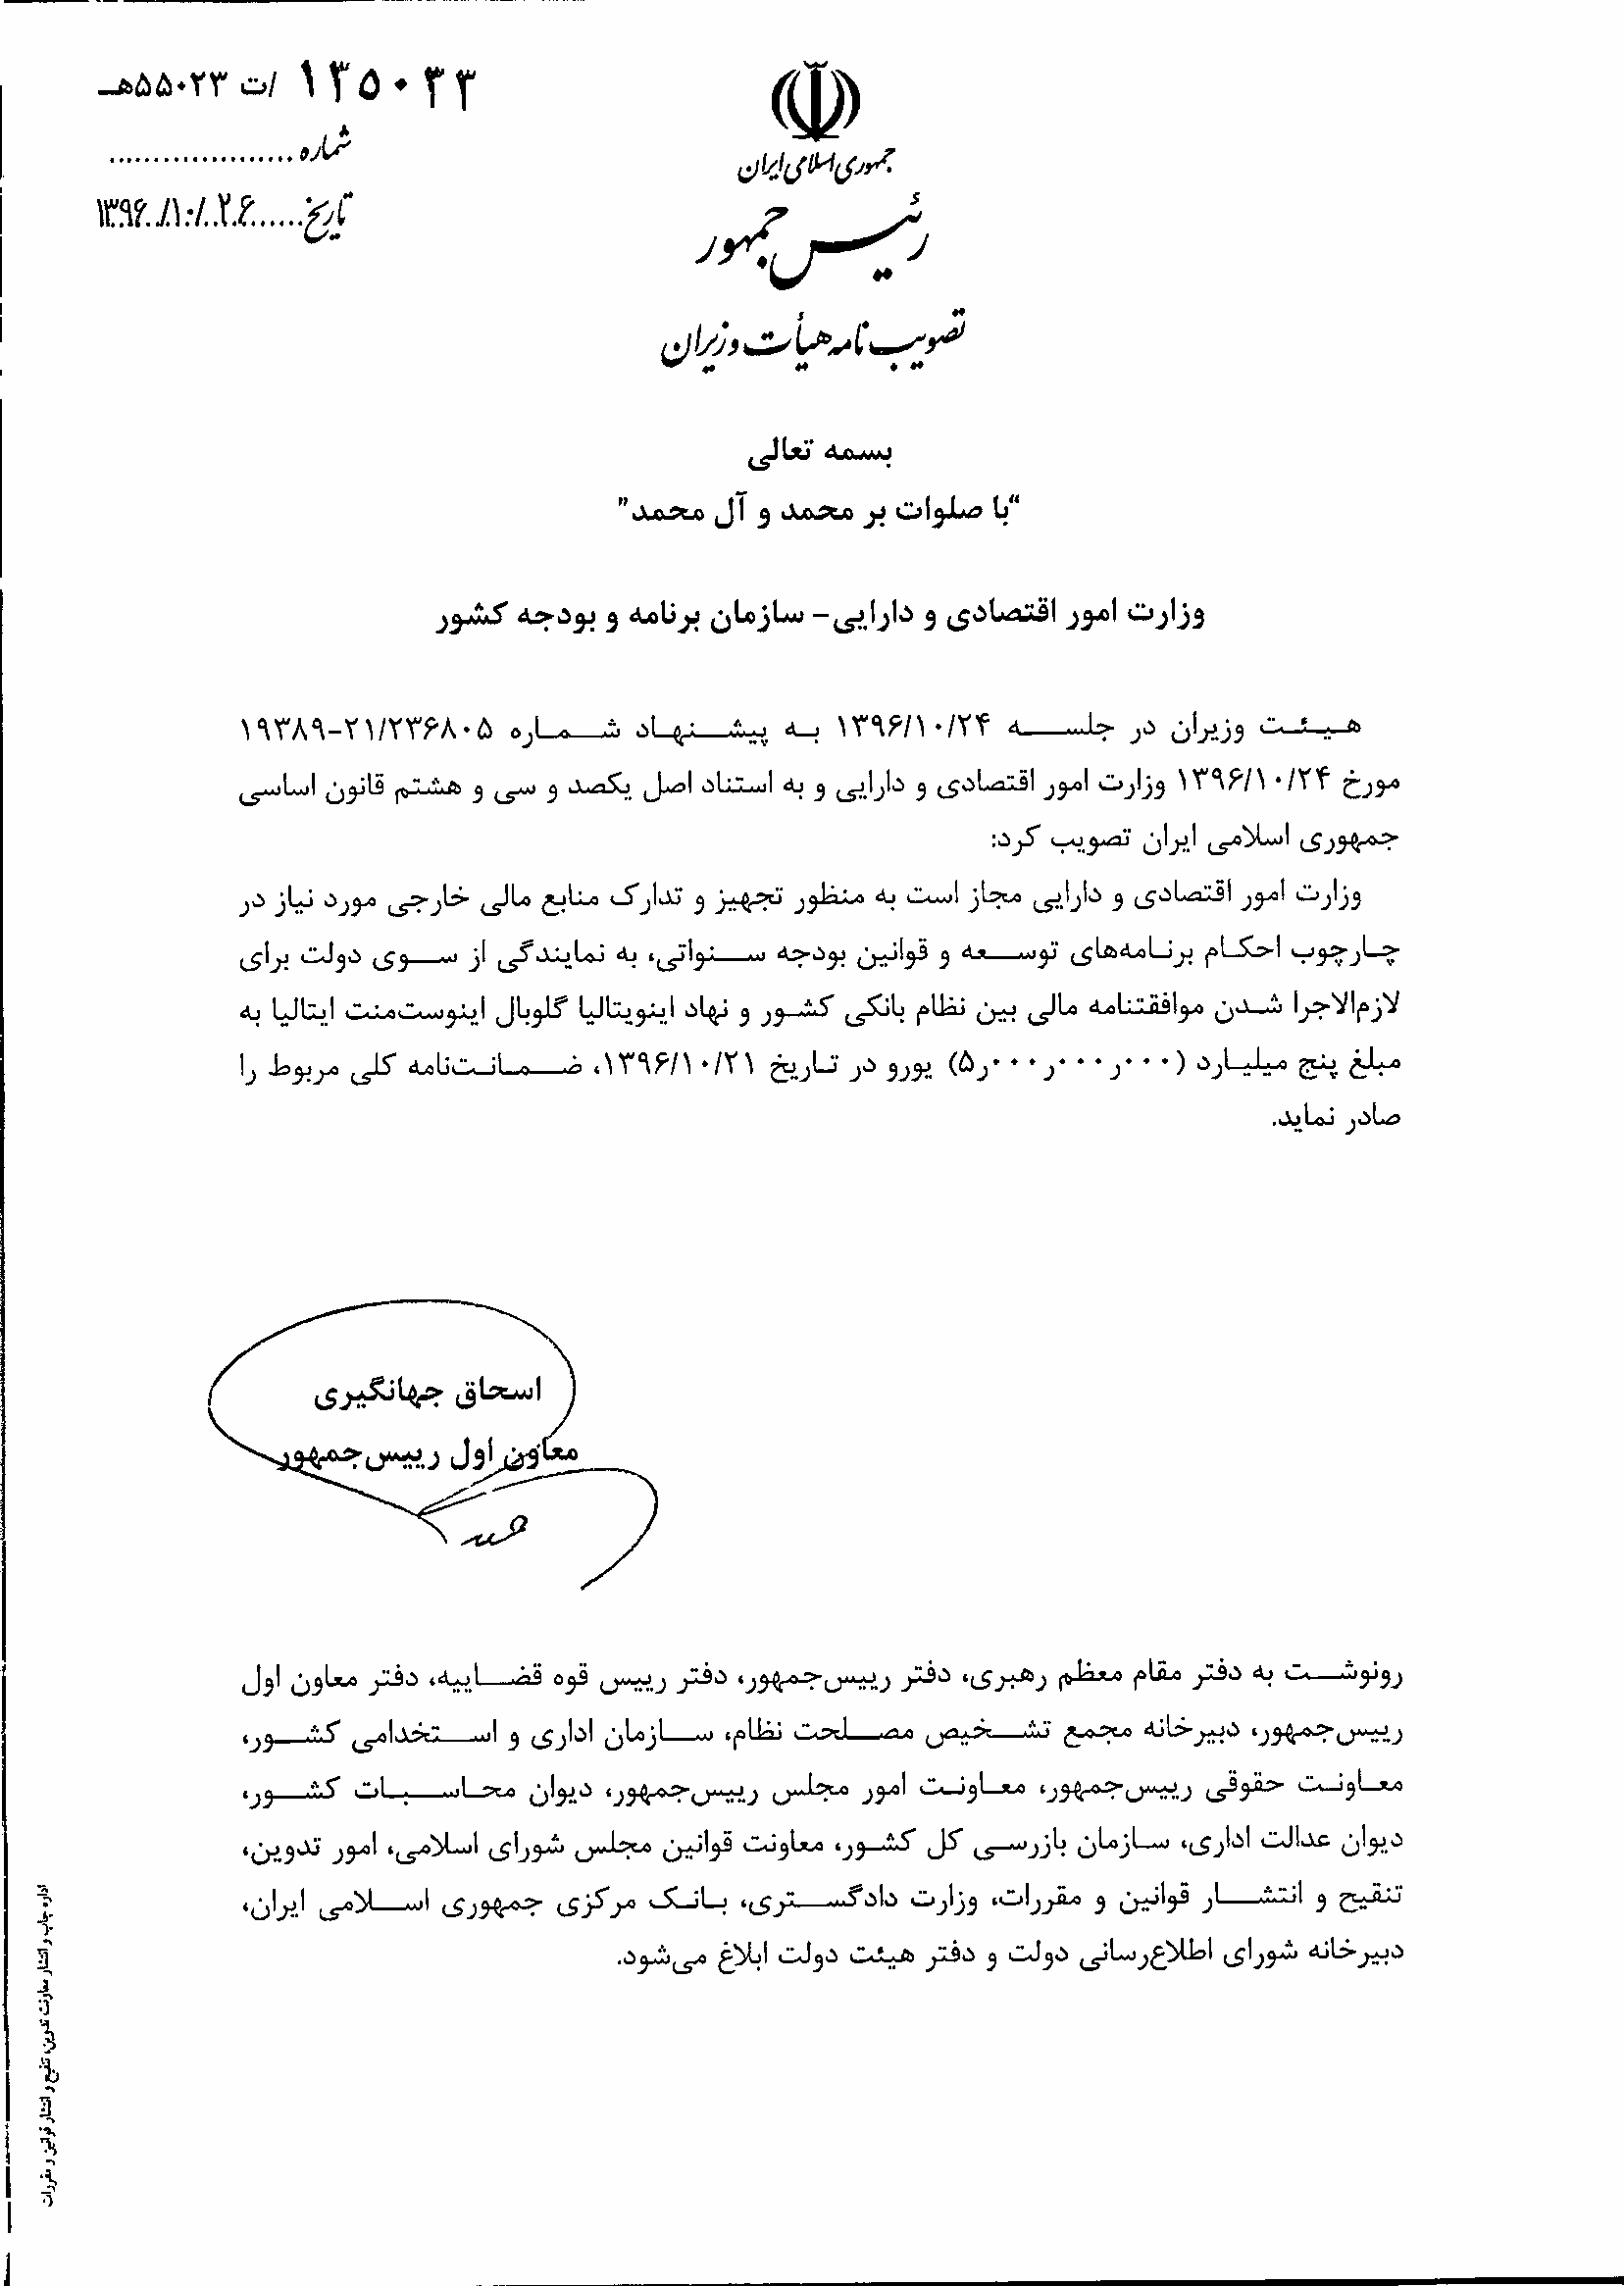 ۱۳۵۰۳۳ /ت ۵۵۰۲۳هـ
شماره
تاریخ ۱۳۹۶/۱۰/۲۶
جمهوری اسلامی ایران
رئیس جمهور
تصویب نامه هیأت وزیران
بسمه تعالی
"با صلوات بر محمد و آل محمد"
وزارت امور اقتصادی و دارایی- سازمان برنامه و بودجه کشور
هیئت وزیران در جلسه ۱۳۹۶/۱۰/۲۴ به پیشنهاد شماره ۱۹۳۸۹-۲۱/۲۳۶۸۰۵
مورخ ۱۳۹۶/۱۰/۲۴ وزارت امور اقتصادی و دارایی و به استناد اصل یکصد و سی و هشتم قانون اساسی
جمهوری اسلامی ایران تصویب کرد:
وزارت امور اقتصادی و دارایی مجاز است به منظور تجهیز و تدارک منابع مالی خارجی مورد نیاز در
چارچوب احکام برنامه‌های توسعه و قوانین بودجه سنواتی، به نمایندگی از سوی دولت برای
لازم‌الاجرا شدن موافقتنامه مالی بین نظام بانکی کشور و نهاد اینویتالیا گلوبال اینوست‌منت ایتالیا به
مبلغ پنج میلیارد (۵٫۰۰۰٫۰۰۰٫۰۰۰) یورو در تاریخ ۱۳۹۶/۱۰/۲۱، ضمانت‌نامه کلی مربوط را
صادر نماید.
اسحاق جهانگیری
معاون اول رییس‌جمهور
رونوشت به دفتر مقام معظم رهبری، دفتر رییس‌جمهور، دفتر رییس قوه قضاییه، دفتر معاون اول
رییس‌جمهور، دبیرخانه مجمع تشخیص مصلحت نظام، سازمان اداری و استخدامی کشور،
معاونت حقوقی رییس‌جمهور، معاونت امور مجلس رییس‌جمهور، دیوان محاسبات کشور،
دیوان عدالت اداری، سازمان بازرسی کل کشور، معاونت قوانین مجلس شورای اسلامی، امور تدوین،
تنقیح و انتشار قوانین و مقررات، وزارت دادگستری، بانک مرکزی جمهوری اسلامی ایران،
دبیرخانه شورای اطلاع‌رسانی دولت و دفتر هیئت دولت ابلاغ می‌شود.
اداره چاپ و انتشار معاونت تدوین، تنقیح و انتشار قوانین و مقررات